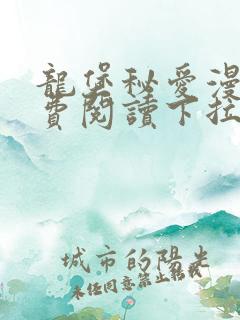 龍堡秘愛漫
費閱讀下拉
城市的陽光
未經同意禁止轉載